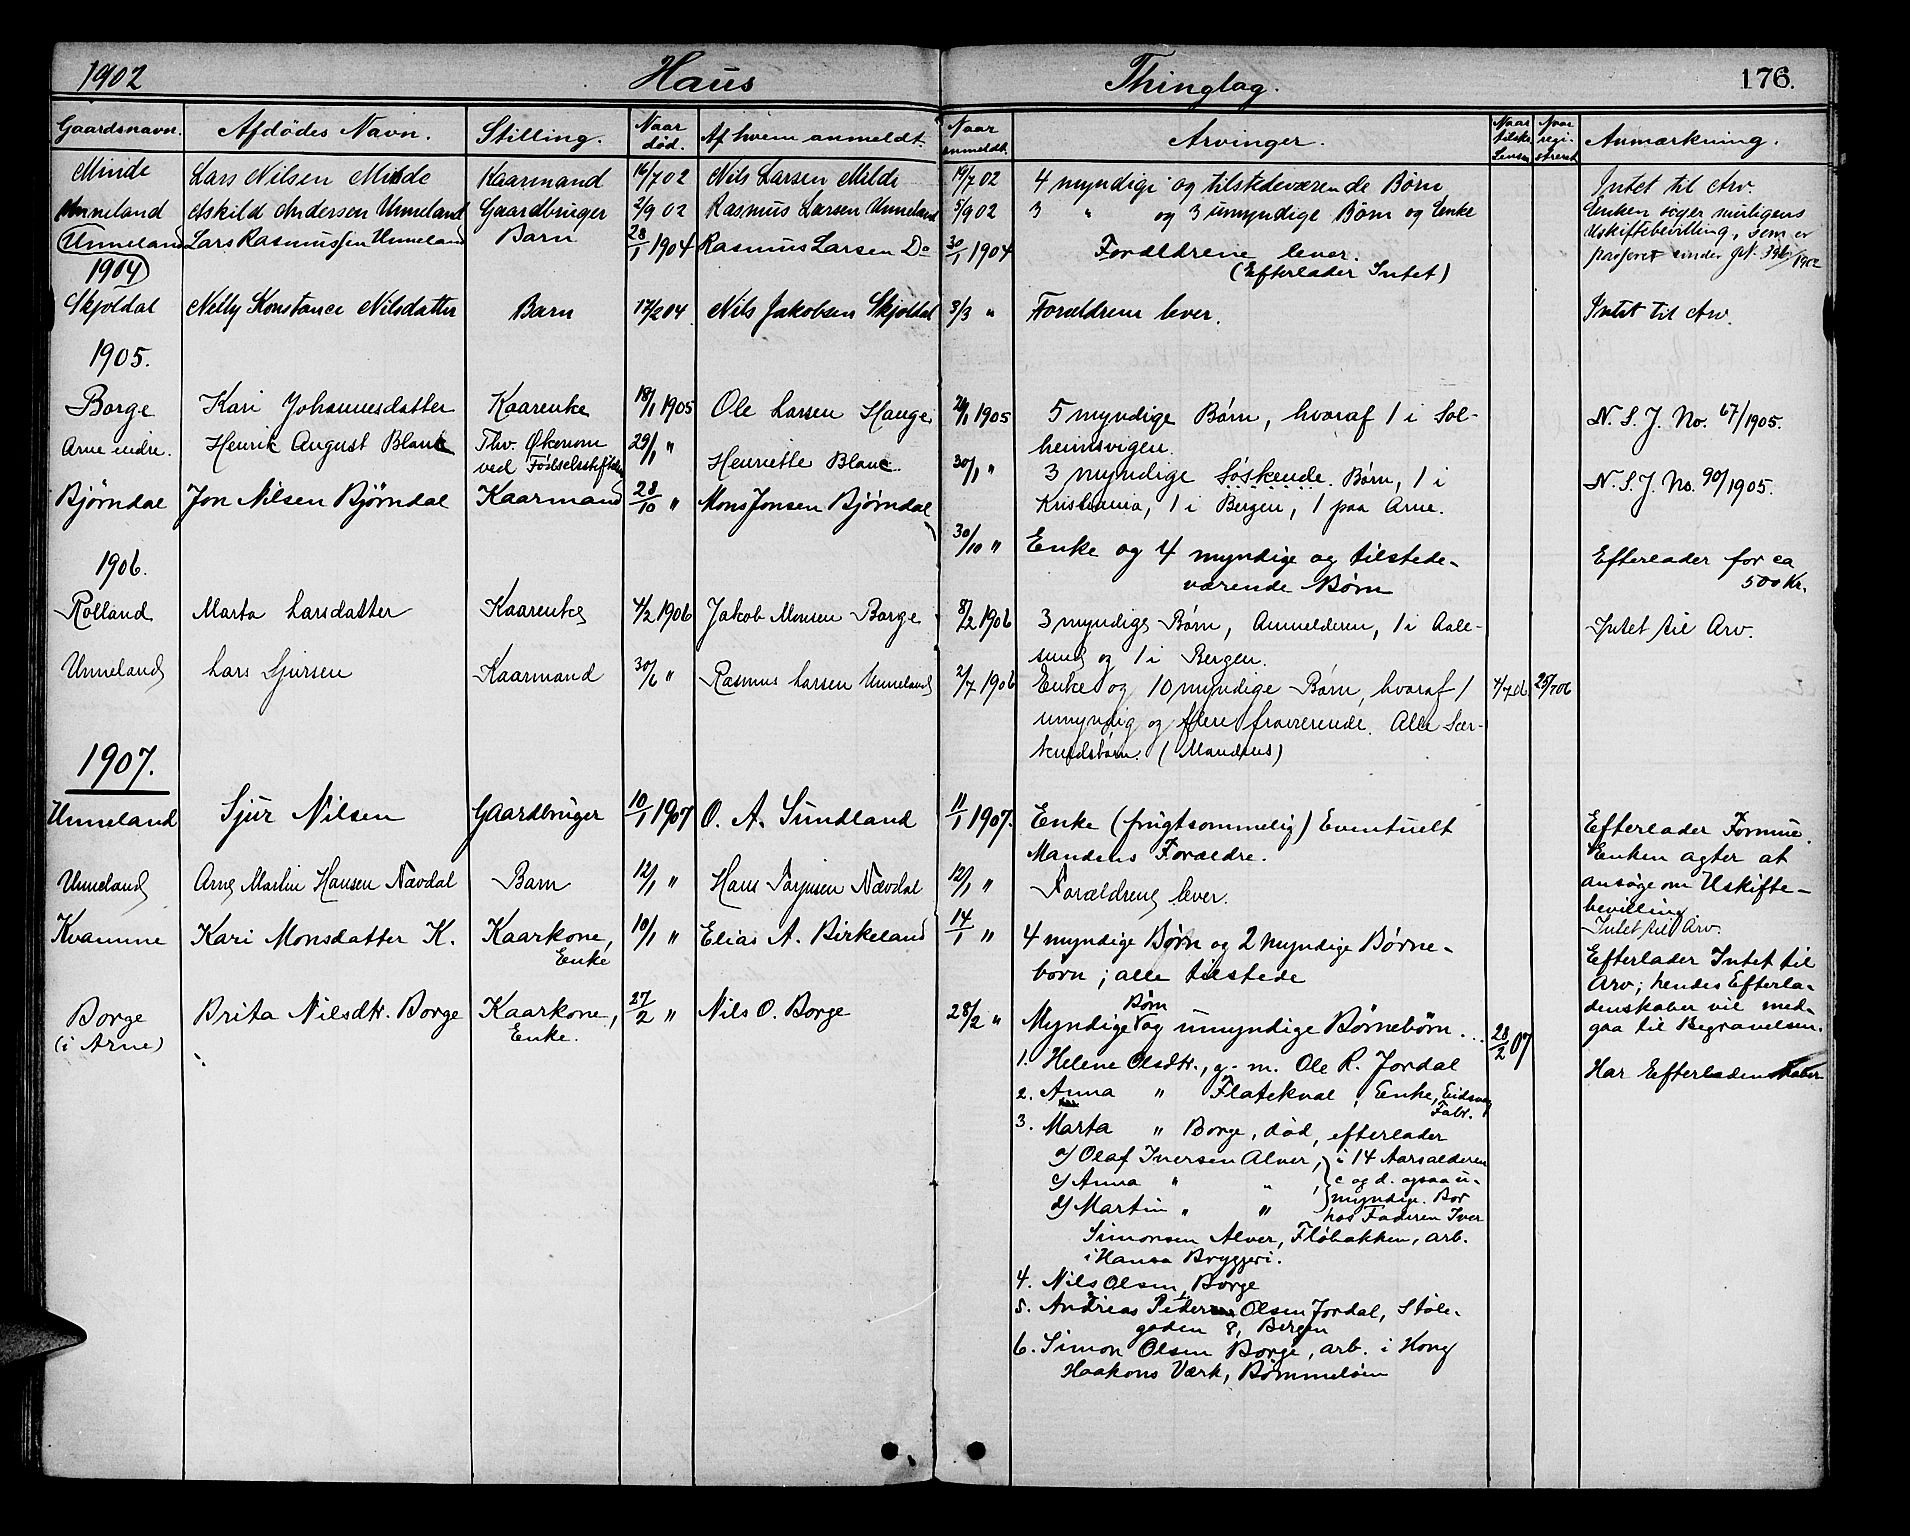 1902 Haus Thinglag. 176.
Gaardsnavn. Afdödes Navn. Stilling. Naar död. Af hvem anmeldt Naar anmeldt. Arvinger. Naar tilskr. Lensm Naar regi-streret Anmærkning.
Minde Lars Nilsen Milde Kaarmand 16/7 02 Nils Larsen Milde 19/7 02 4 myndige og tilstedeværende Børn Intet til Arv.
Unneland Askild Andersen Unneland Gaardbruger 2/9 02 Rasmus Larsen Unneland 5/9 02 3 " og 3 umyndige Børn og Enke Enken søger
Uskiftebevilling, som er
Unneland Lars Rasmussen Unneland Barn 28/1 1904 Rasmus Larsen Do 30/1 1904 Forældrene lever. under 1902
1904 (Efterlader Intet)
Skjoldal Nelly Konstance Nilsdatter Barn 17/2 04 Nils Jakobsen Skjoldal 3/3 " Forældrene lever. Intet til Arv.
1905.
Borge Kari Johannesdatter Kaarenke 18/1 1905 Ole Larsen Hauge 1905 5 myndige Børn, hvoraf 1 i Sol-
heimsvigen. N.S.J. No. 67/1905.
Arne indre. Henrik August Blanc Thv. Økonom
ved Fødselsstiftelsen 29/1 " Henriette Blanc. 30/1 " 3 myndige Søskende. Børn, 1 i
Kristiania, 1 i Bergen, 1 paa Arne. N.S.J. No. 90/1905.
Bjørndal Jon Nilsen Bjørndal Kaarmand 28/10 " Mons Jonsen Bjørndal 30/10 " Enke og 4 myndige og tilstede-
værende Børn Efterlader for ca
500 Kr.
1906.
Rolland Marta Larsdatter Kaarenke 4/2 1906 Jakob Monsen Borge 8/2 1906 3 myndige Børn, Anmelderen, 1 i Aale-
sund og 1 i Bergen. Intet til Arv.
Unneland Lars Sjursen Kaarmand 30/6 " Rasmus Larsen Unneland 2/7 1906 Enke og 10 myndige Børn, hvoraf 1 4/7 06 25/7 06
umyndig og flere fraværende. Alle Sær-
kuldsbørn. (Mandens)
1907.
Unneland Sjur Nilsen Gaardbruger 10/1 1907 O. A. Sundland 11/1 1907. Enke (frugtsommelig) Eventuelt
Mandens Forældre. Efterlader Formue.
Enken agter at
ansøge om Uskifte-
bevilling
Unneland Arne Martin Hansen Nævdal Barn 12/1 " Hans Nævdal 12/1 " Forældrene lever. Intet til Arv.
Kvamme Kari Monsdatter K. Kaarkone,
Enke 10/1 " Elias A. Birkeland 14/1 " 4 myndige Børn og 2 myndige Børne-
børn; alle tilstede Efterlader Intet til
Arv; hendes Efterla-
denskaber vil med-
gaa til Begravelsen.
Borge
(i Arne) Brita Nilsdtr. Borge Kaarkone,
Enke. 27/2 " Nils O. Borge 28/2 " Myndige Børn og umyndige Børnebørn... 28/2 07 Har Efterladenskaber
1. Helene Olsdtr., g. m. Ole R. Jordal
2. Anna " Flatekval, Enke, Eidsvaag
Fabr.
3. Marta " Borge, død, efterlader
a/ Olaf Iversen Alver, i 14 Aarsalderen
c/ Anna " " , c og d. ogsaa u-
d/ Martin " " myndige. Bor
hos Faderen Iver
Simonsen Alver, Fløbakken, arb.
i Hansa Bryggeri.
4. Nils Olsen Borge
5. Andreas Peder Olsen Jordal, Støle-
gaden 8, Bergen
6. Simon Olsen Borge, arb. i Kong
Haakons Værk, Bømmeløen